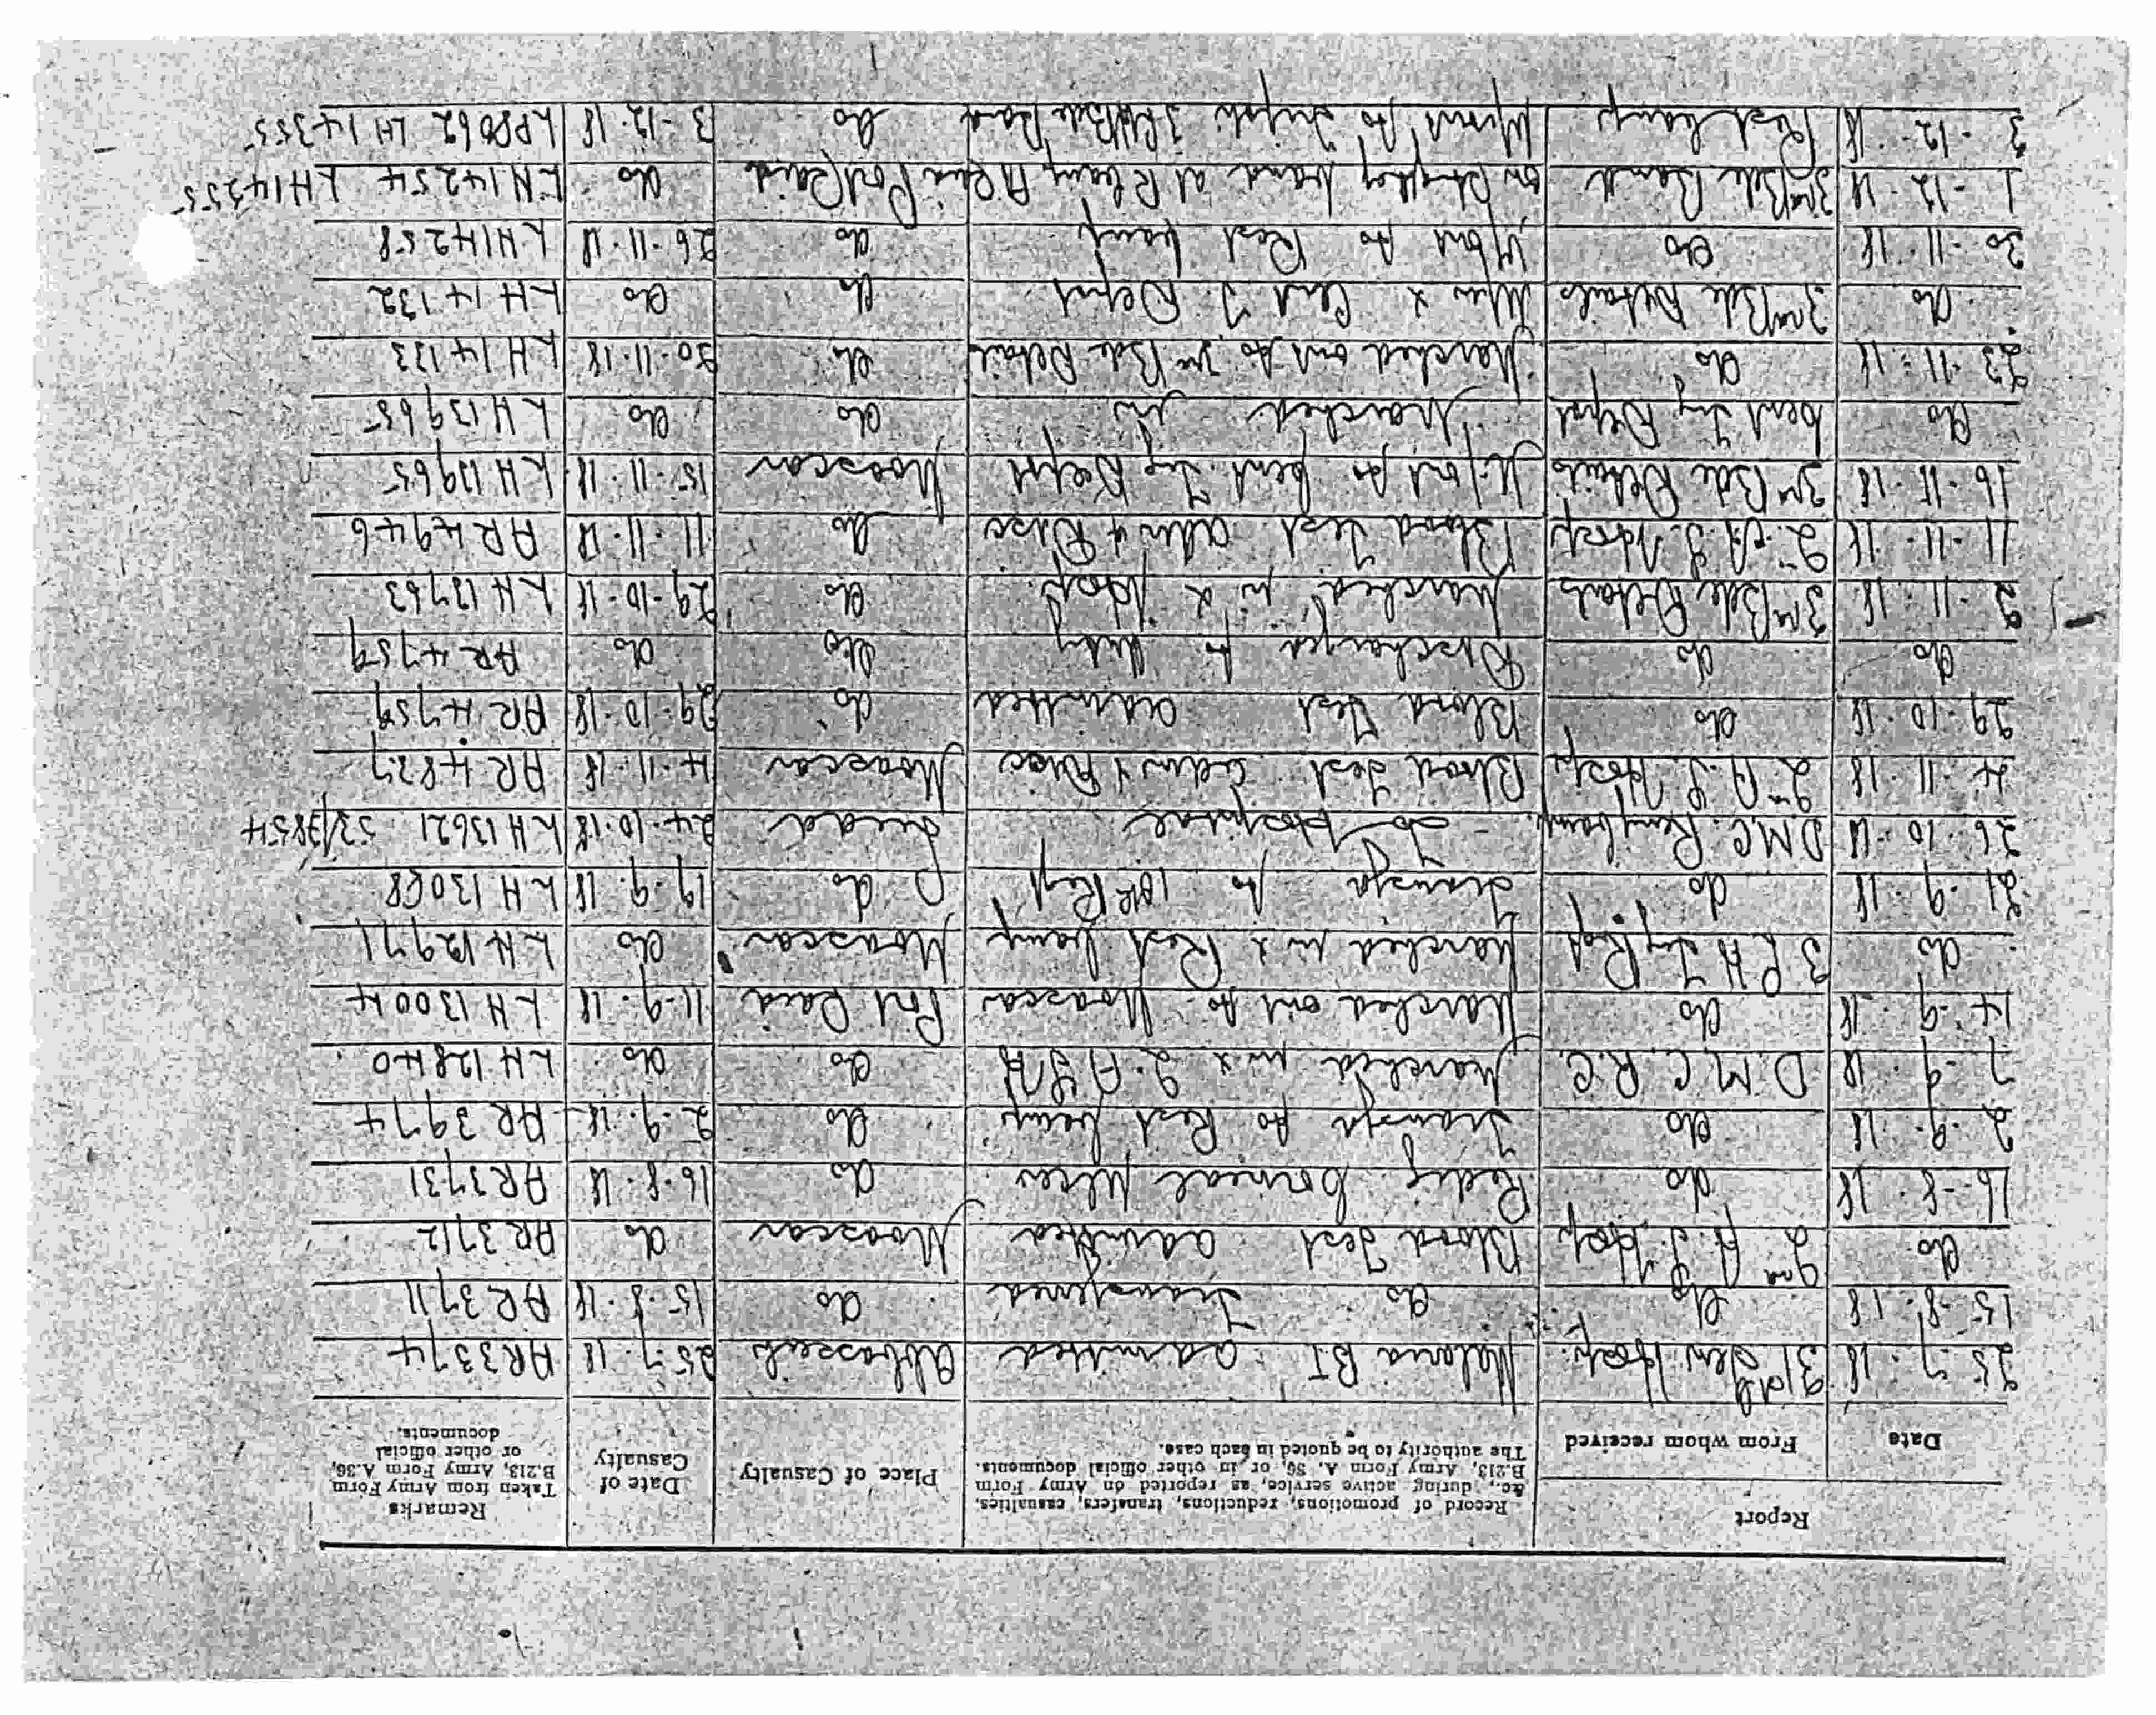 Report
Record of promotions, reductions, transfers, casualties, &c., during active service, as reported on Army Form B.213, Army Form A. 36, or in other official documents. The authority to be quoted in each case.
Place of Casualty
Date of Casualty
Remarks
Taken from Army Form B.213, Army Form A.36, or other official documents.
Date From whom received
25.7.18 31st Gen Hosp. Malaria BT admitted Abbassieh 25.7.18 AR3374
15.8.18 do do Transferred do 15.8.18 AR3711
do 2nd A.S. Hosp Blood Test admitted Moascar do AR3712
16.8.18 do Corneal Ulcer do 16.8.18 AR3731
2.9.18 do Transfr to Rest Camp do 2.9.18 AR3974
7.9.18 D.M.C. R.C. Marched in x 2.A.S.H do do LH12840
14.9.18 do Marched out to Moascar Port Said 11.9.18 LH13004
do 3 L H Trg Regt Marched in x Rest Camp Moascar do LH12971
21.9.18 do Transfr to 10th Regt do 19.9.18 LH13068
26.10.18 D.M.C. Rein Camp To Hospital 24.10.18 LH13621 53/3854
4.11.18 2nd A.S. Hosp Blood Test Adm & Disc Moascar 4.11.18 AR4827
29.10.18 do Blood Test admitted do 29.10.18 AR4759
do do Discharged to duty do do AR4759
2.11.18 3rd Bde Details Marched in x Hosp. do 29.10.18 LH13763
11.11.18 2nd A.S. Hosp Blood Test Adm & Disc do 11.11.18 AR4946
16.11.18 3rd Bde Details M/out to Cent Trg Depot Moascar 15.11.18 LH13965
do Cent Trg Depot Marched in do do LH13965
23.11.18 do Marched out to 3rd Bde Details do 20.11.18 LH14133
do 3rd Bde Details M/in x Cent T Depot do do LH14132
30.11.18 do M/out to Rest Camp do 26.11.18 LH14258
1.12.18 3rd Bde on Camp Port Said do LH14254 LH14255
3.12.18 Rest Camp M/out to 3rd Bde do 3.12.18 LH14355